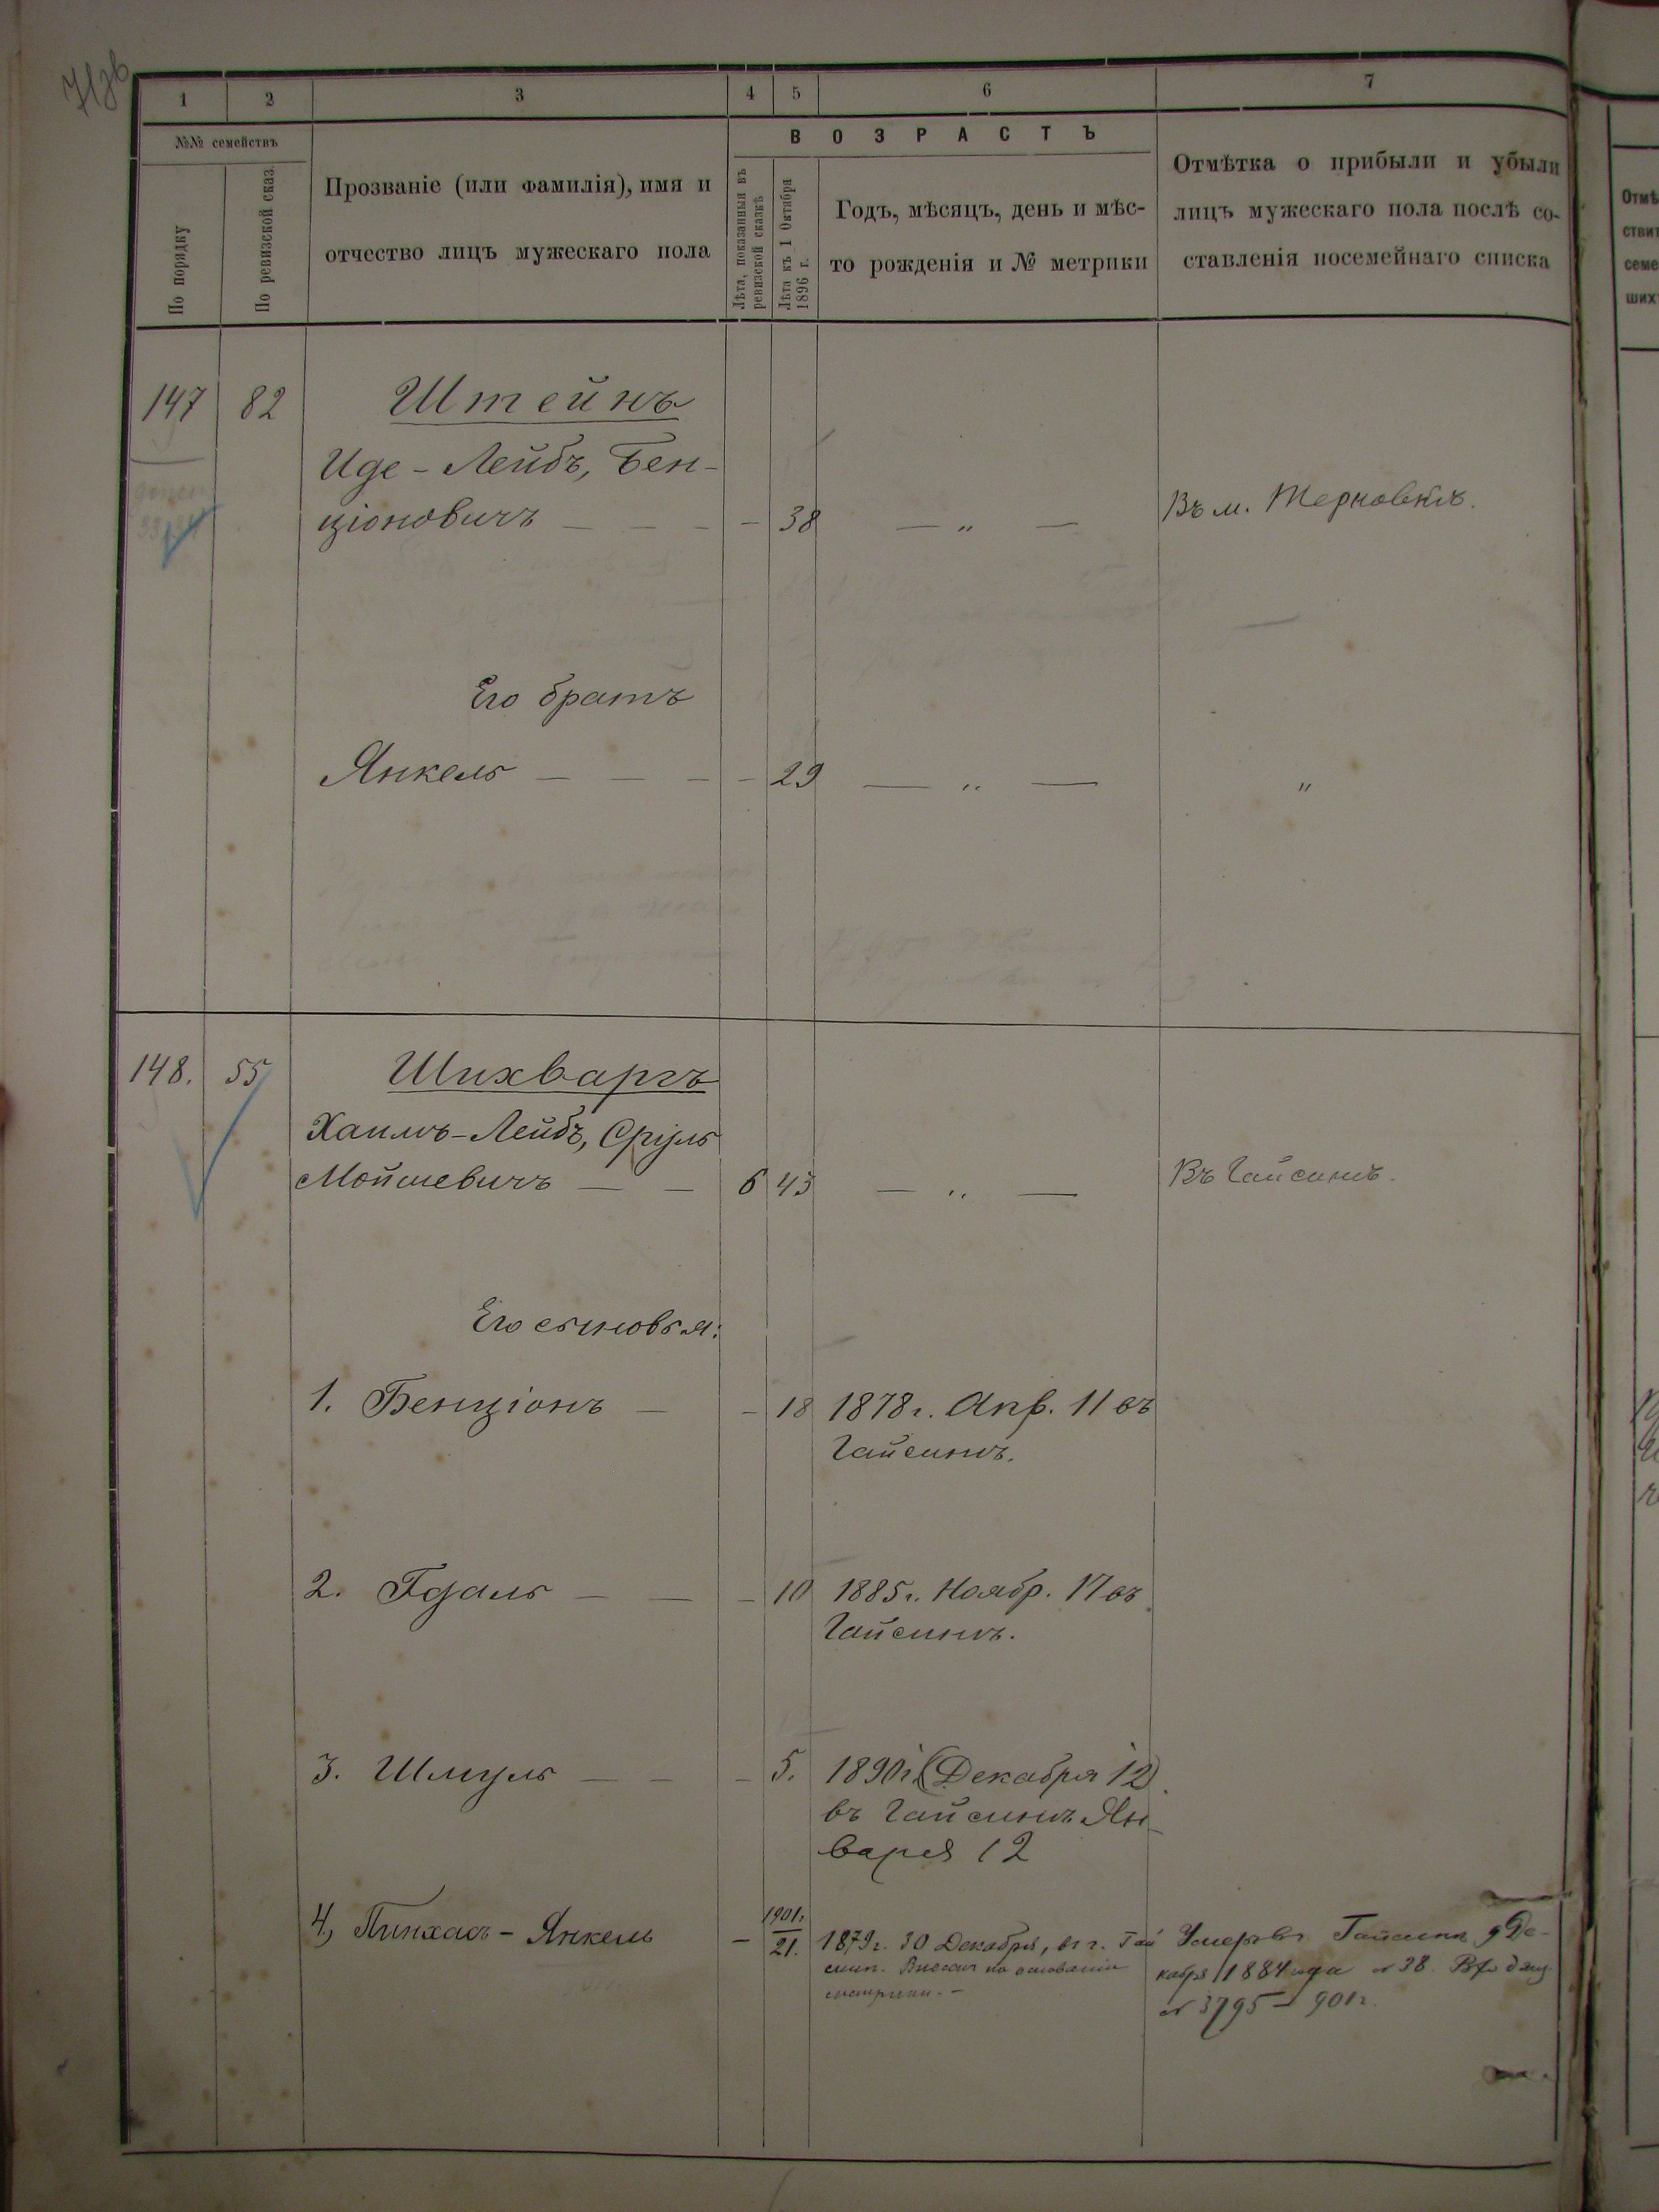 1 2 3 4 5 6 7
№№ семействъ
По порядку
По ревизской сказ.
Прозваніе (или фамилія), имя и
отчество лицъ мужескаго пола
ВОЗРАСТЪ
Лѣта, показанныя въ
ревизской сказкѣ
Лѣта къ 1 Октября
1896 г.
Годъ, мѣсяцъ, день и мѣс-
то рожденія и № метрики
Отмѣтка о прибыли и убыли
лицъ мужескаго пола послѣ со-
ставленія посемейнаго списка
147 82 Штейнъ
Иде-Лейбъ, Бен-
ціоновичъ — — — — 38 — „ — Въ м. Терновкѣ.
Его братъ
Янкель — — — — 29 — „ — „
148. 55 Шихваргъ
Хаимъ-Лейбъ, Сруль
Мойшевичъ — — 6 43 — „ — Въ Гайсинѣ.
Его сыновья:
1. Бенціонъ — — 18 1878 г. Апр. 11 въ
Гайсинѣ.
2. Гдаль — — — 10 1885 г. Ноябр. 17 въ
Гайсинѣ.
3. Шмуль — — — 5. 1890 г. (Декабря 12)
въ Гайсинѣ Ян-
варя 12
4, Пинхас-Янкель — 1901 г. 21. 1879 г. 30 Декабря, въ г. Гай
син. Внесен на основаніи
метрики. —
Умеръ въ Гайсинѣ 9 Де-
кабря 1884 года № 38.
№ 3795 — 901 г.
Отмѣ
стви
семе
ших